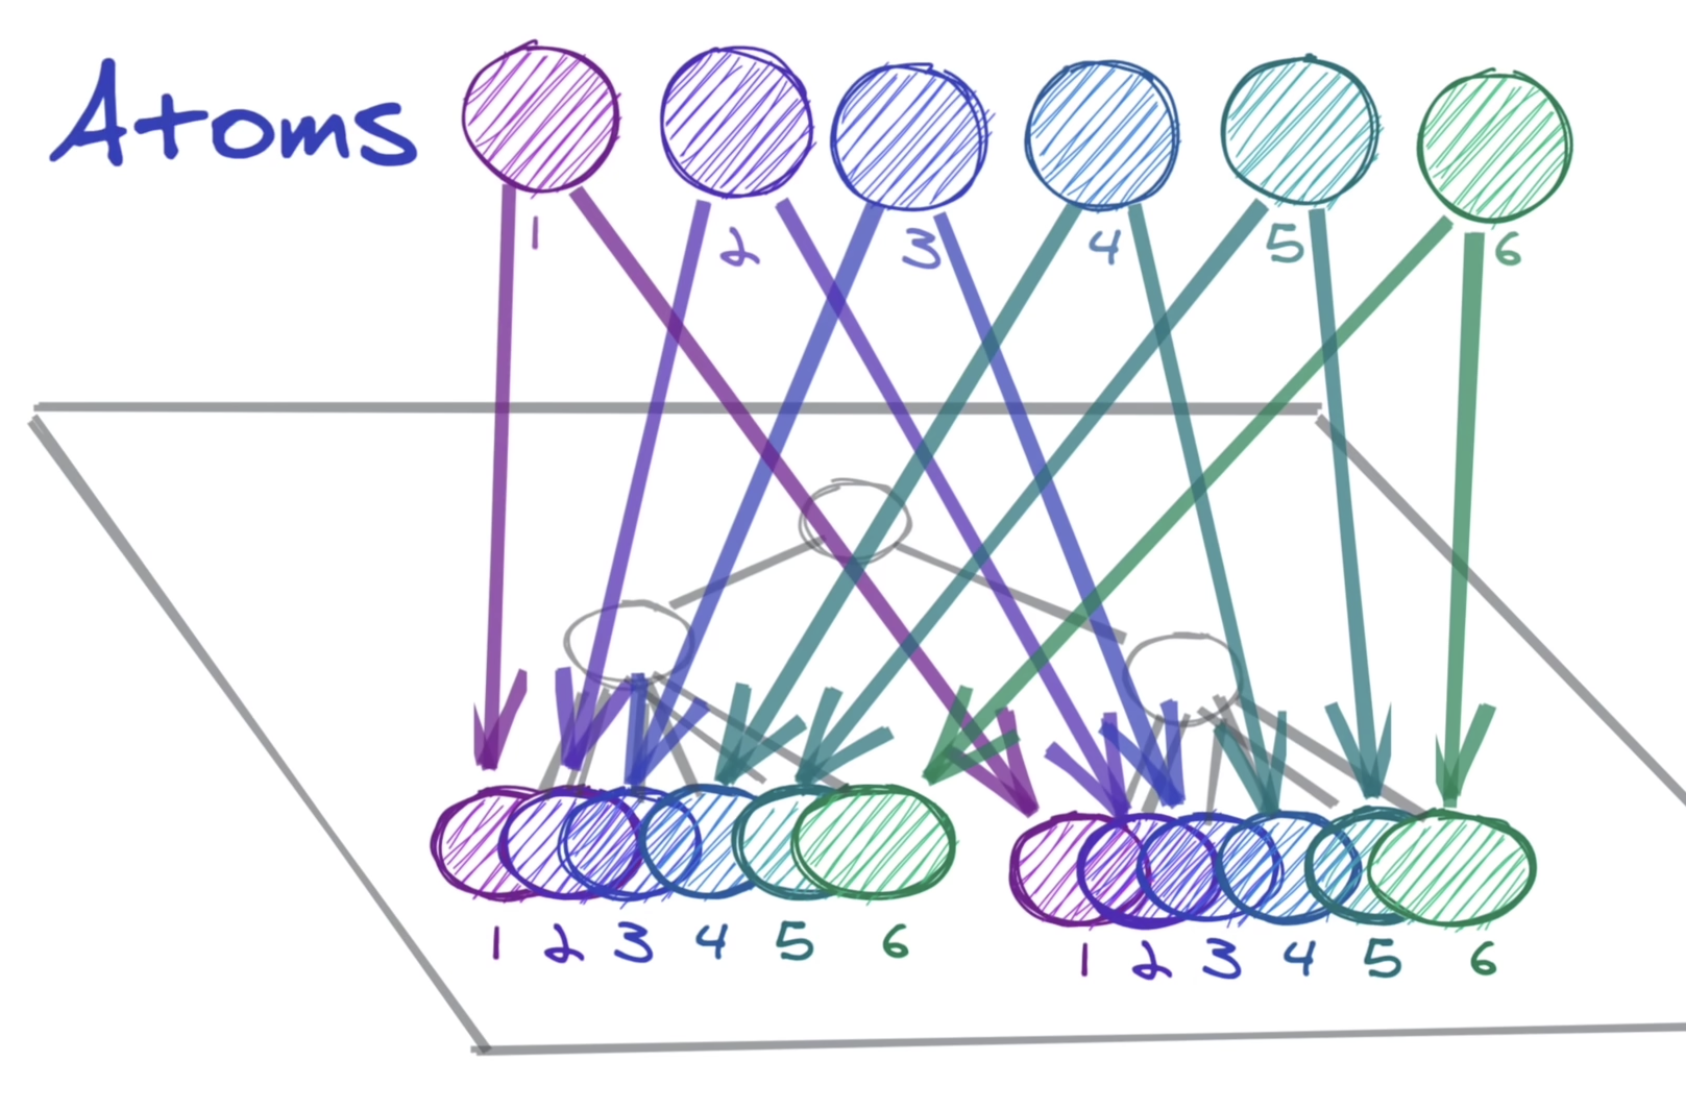 Atoms
1 2 3 4 5 6
1 2 3 4 5 6
1 2 3 4 5 6